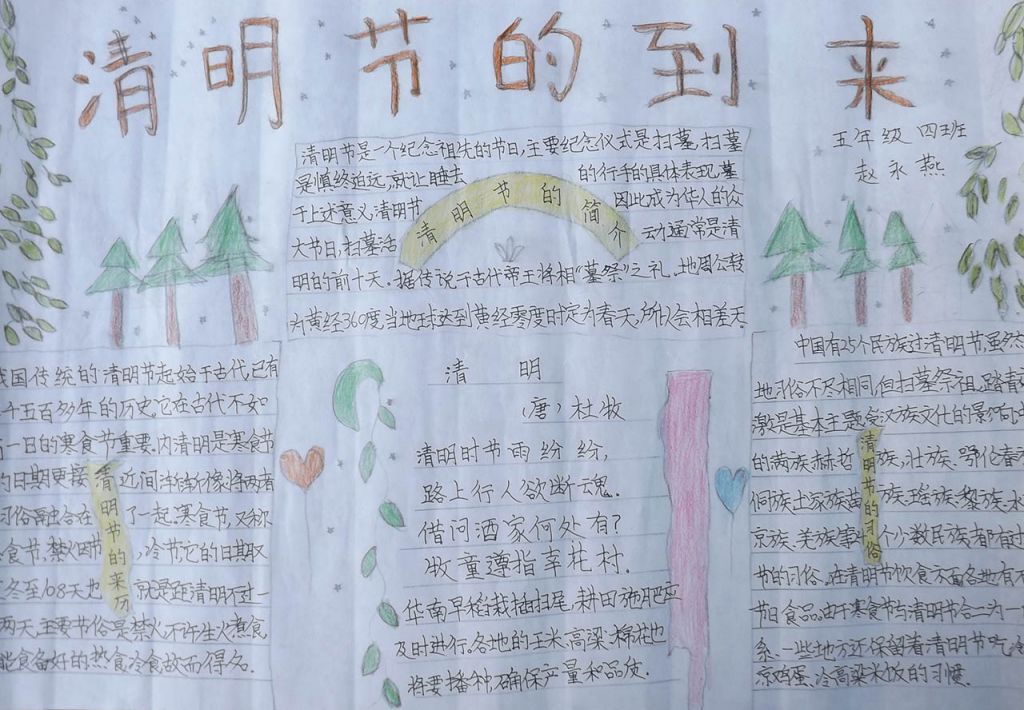 清明节的到来
五年级 四班
赵永燕
清明节是一个纪念祖先的节日,主要纪念仪式是扫墓,扫墓
是慎终追远,就让睦去
的行手的具体表现,墓
于上述意义,清明节
因此成为华人的众
大节日,扫墓活
动通常是清
明的前十天.据传说于古代帝王将相“墓祭”之礼.地周公转
为黄经360度,当地球达到黄经零度时定为春天,所以会相差天.
清明节的简介
国传统的清明节起始于古代,已有
千五百多年的历史,它在古代不如
一日的寒食节重要,内清明是寒食节
日期更接
近间
将两者
习俗
合在
了一起.寒食节,又称
食节,禁火节
,冷节它的日期
冬至108天也
就是距清明不过一
两天,主要节俗是禁火不许生火煮食
能食备好的热食冷食故而得名.
清明节的来历
清 明
(唐)杜牧
清明时节雨纷纷,
路上行人欲断魂.
借问酒家何处有?
牧童遵指幸花村.
华南早稻栽插扫尾,耕田施肥应
及时进行.各地的玉米高梁棉花也
将要播种,确保产量和品质.
中国有25个民族过清明节,虽然
地习俗不尽相同,但扫墓祭祖,踏青
是基本主题.受汉族文化的影响,
的满族.赫哲
族,壮族.鄂伦春
侗族土家族苗
族.瑶族.黎族.水
京族.羌族等
个少数民族都有过
节的习俗.在清明节饮食不
各地有不
节日食品.由于寒食节与清明节合二为一
系.一些地方还保留着清明节吃冷
凉鸡蛋.冷高粱米饭的习惯.
清明节的习俗